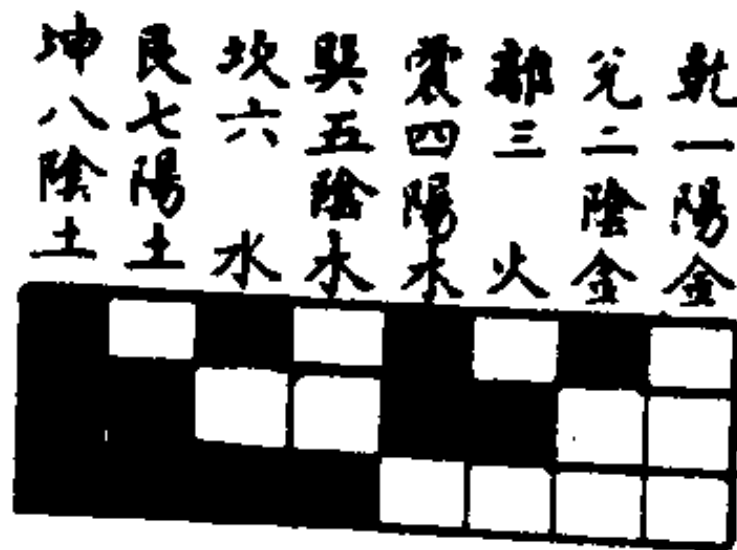 乾一陽金
兌二陰金
離三 火
震四陽木
巽五陰木
坎六 水
艮七陽土
坤八陰土